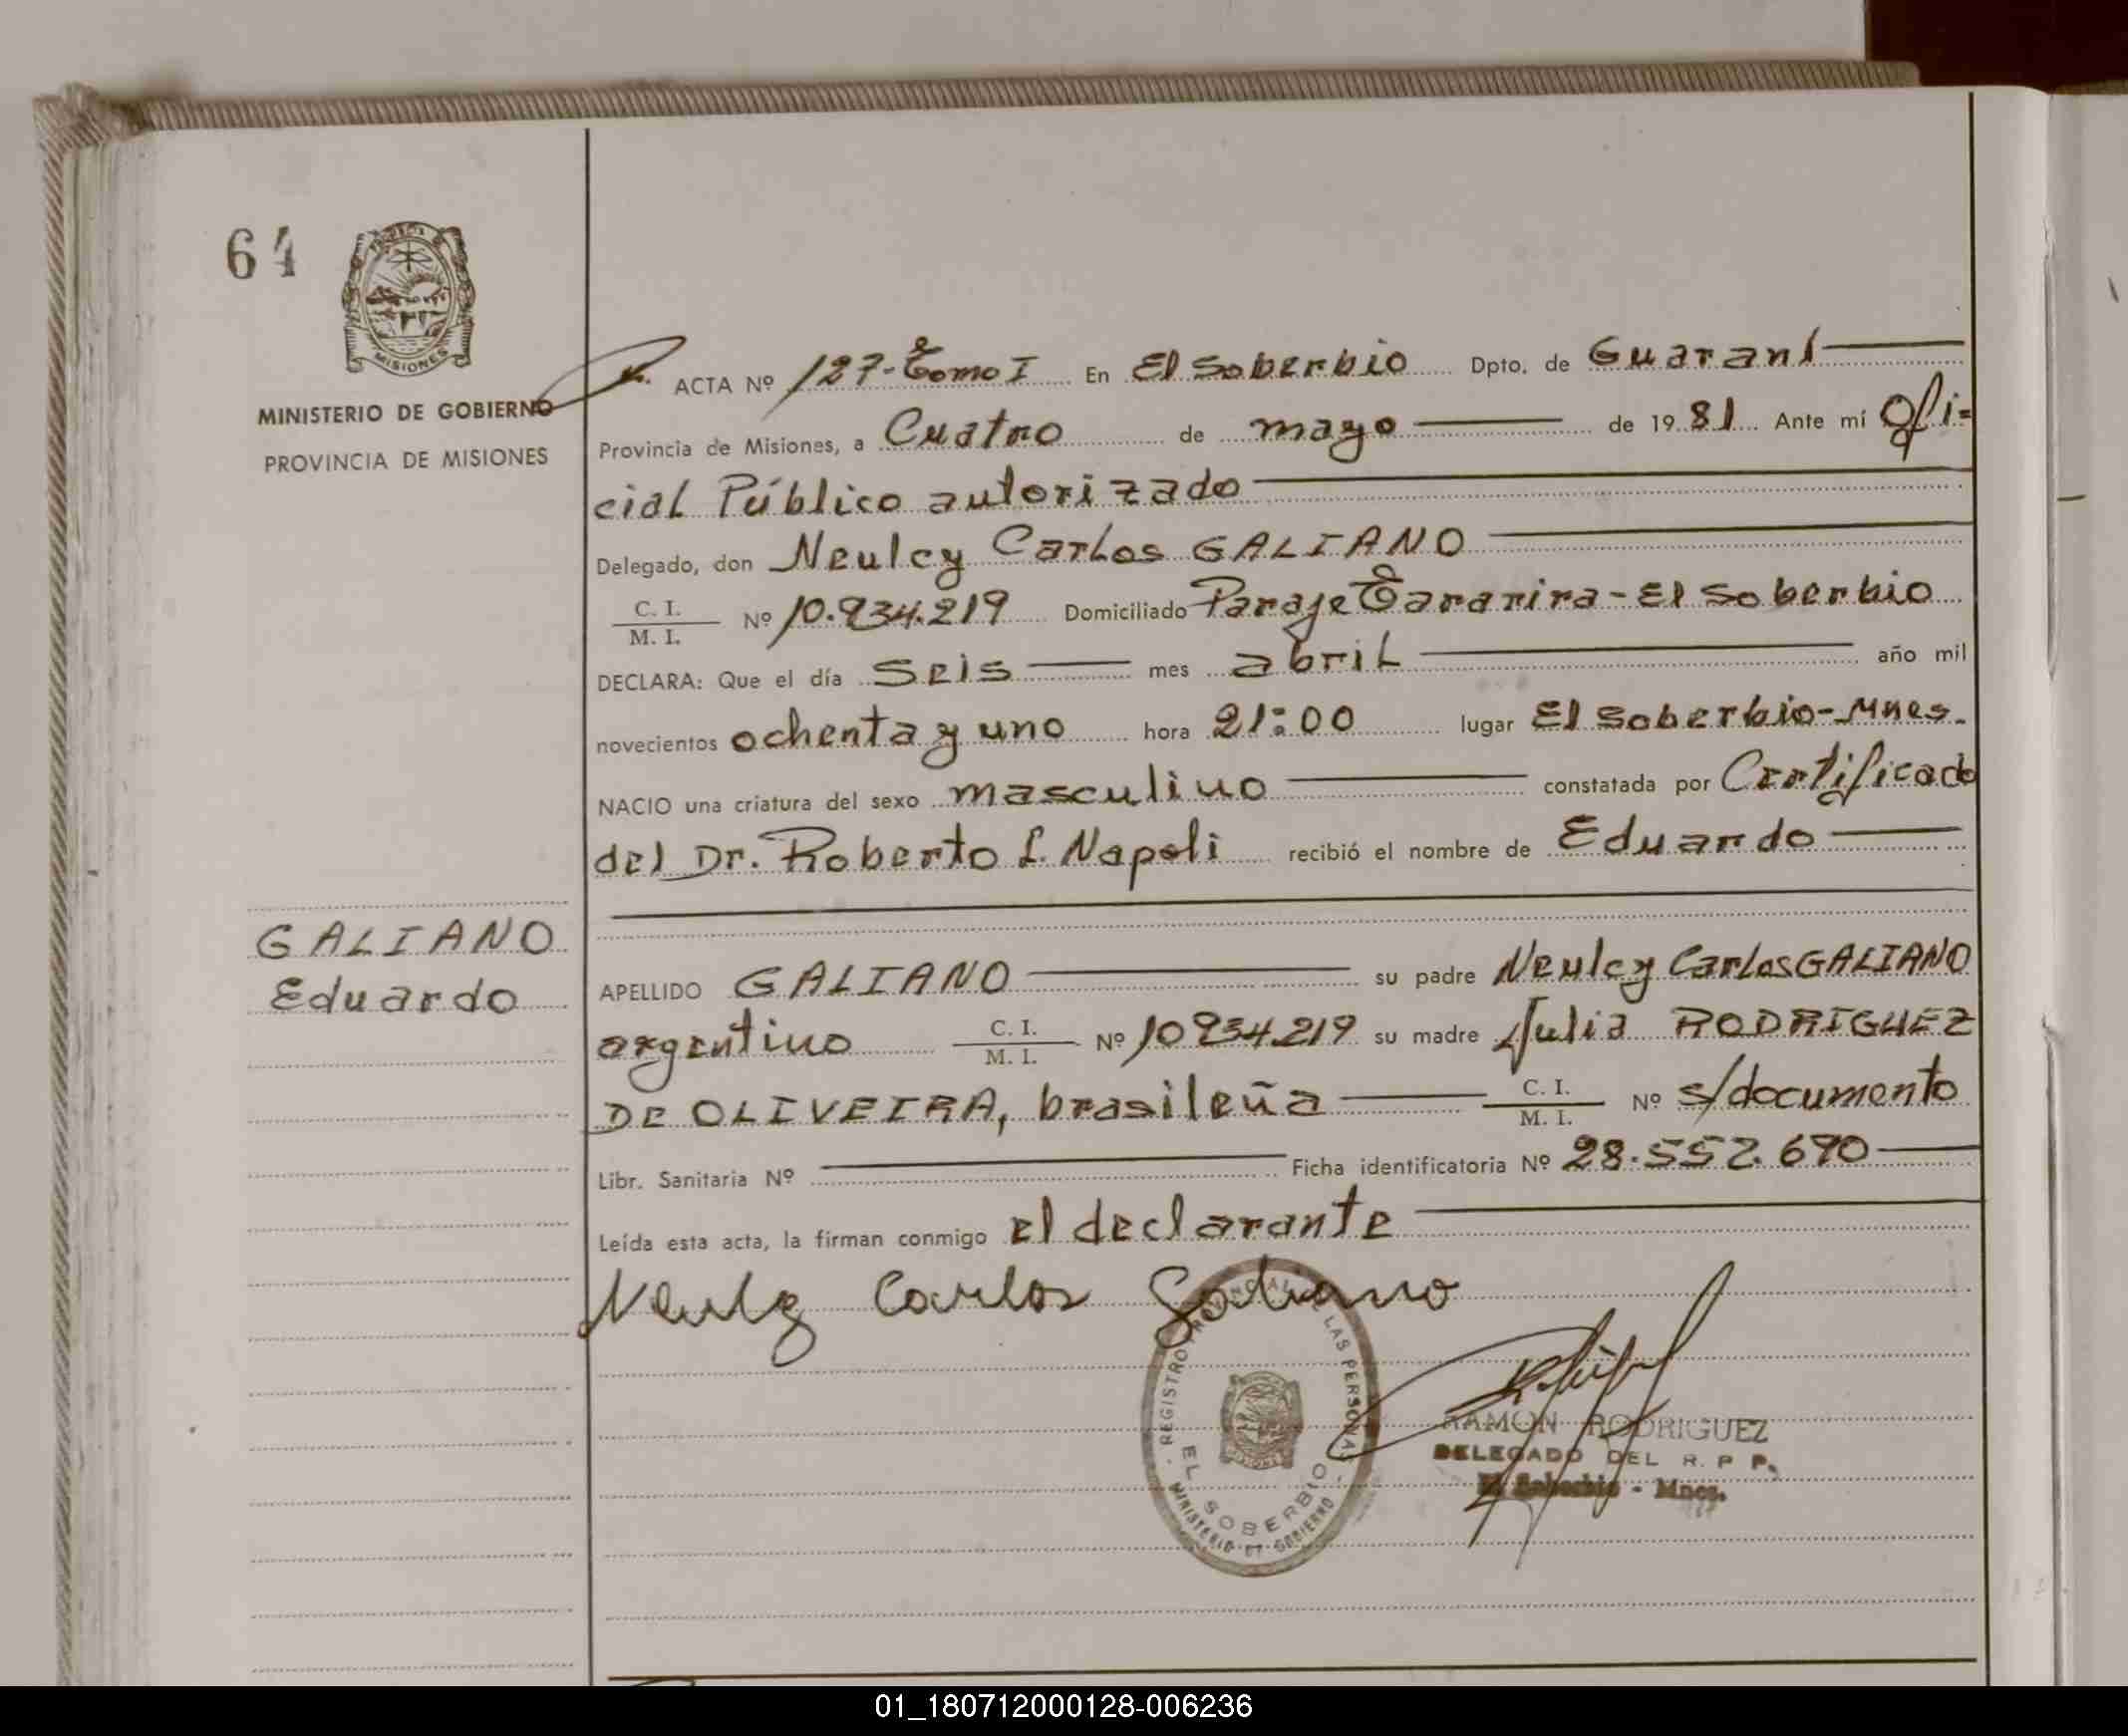 64
MISIONES
MINISTERIO DE GOBIERNO
PROVINCIA DE MISIONES
ACTA Nº 127-Tomo I En El Soberbio Dpto. de Guaraní
Provincia de Misiones, a Cuatro de mayo de 1981 Ante mí Ofi=
cial Público autorizado
Delegado, don Neulcy Carlos GALIANO
C. I. / M. I. Nº 10.934.219 Domiciliado Paraje Tararira - El Soberbio
DECLARA: Que el día seis mes abril año mil
novecientos ochenta y uno hora 21:00 lugar El Soberbio-Mnes.
NACIO una criatura del sexo masculino constatada por Certificado
del Dr. Roberto L. Napoli recibió el nombre de Eduardo
GALIANO
Eduardo
APELLIDO GALIANO su padre Neulcy Carlos GALIANO
argentino C. I. / M. I. Nº 10934.219 su madre Julia RODRIGUEZ
DE OLIVEIRA, brasileña C. I. / M. I. Nº s/documento
Libr. Sanitaria Nº Ficha identificatoria Nº 28.552.690
Leída esta acta, la firman conmigo el declarante
Neulcy Carlos Galiano
REGISTRO PROVINCIAL DE LAS PERSONAS
EL SOBERBIO
MINISTERIO DE GOBIERNO
RAMON RODRIGUEZ
DELEGADO DEL R. P P.
El Soberbio - Mnes.
01_180712000128-006236